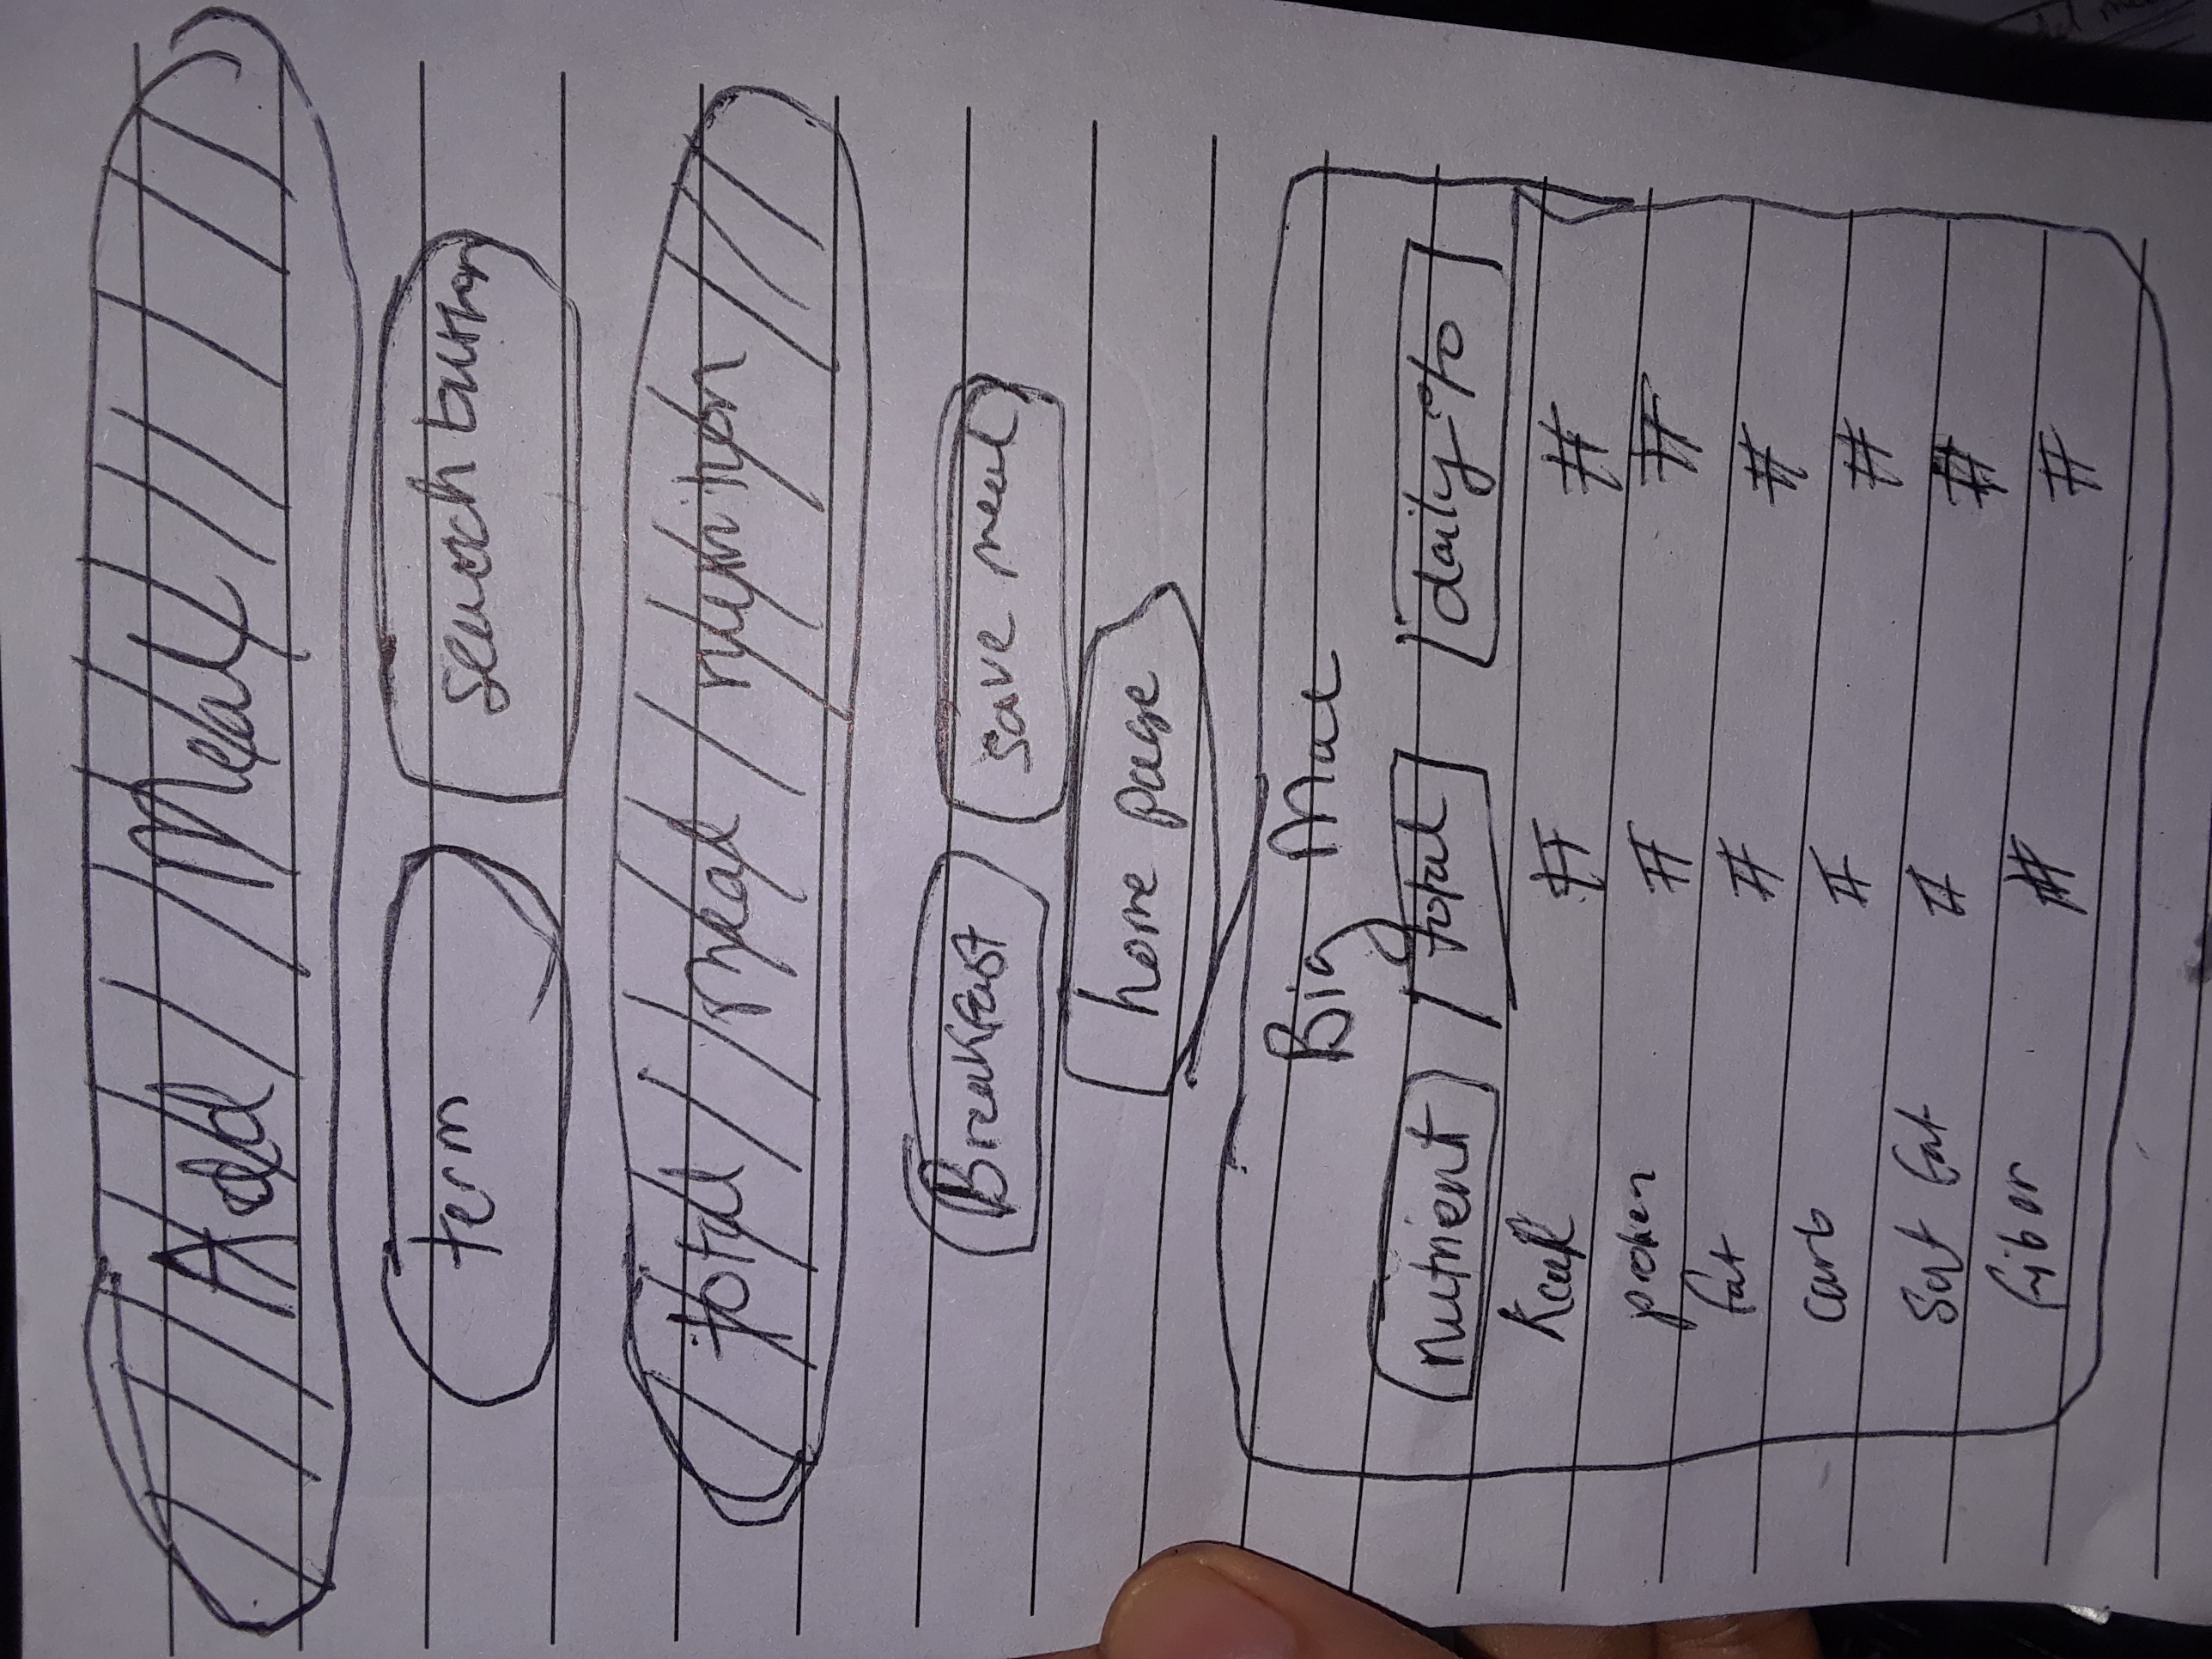 Add Meal
term search button
total meal nutrition
Breakfast save meal
home page
Big Mac
nutrient total daily %
Kcal # #
protien # #
fat # #
carb # #
Sat fat # #
fiber # #